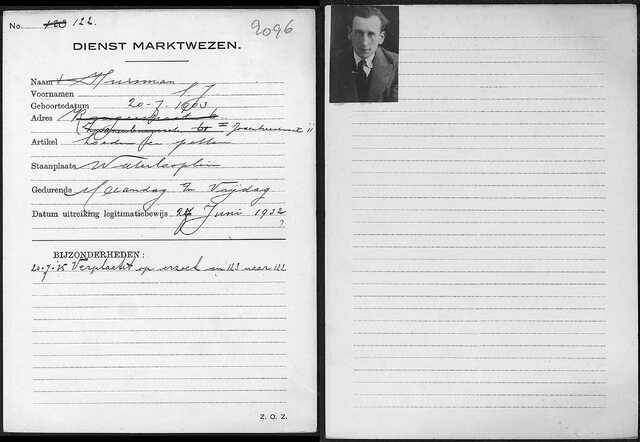 No. 123 122.
2096
DIENST MARKTWEZEN.
Naam Huisman
Voornamen S. J.
Geboortedatum 20-7-1903
Adres
Artikel hoeden en petten
Staanplaats Waterlooplein
Gedurende Maandag en Vrijdag
Datum uitreiking legitimatiebewijs 27 Juni 1932
BIJZONDERHEDEN:
20-7-'35 Verplaatst op verzoek van 123 naar 122
Z. O. Z.